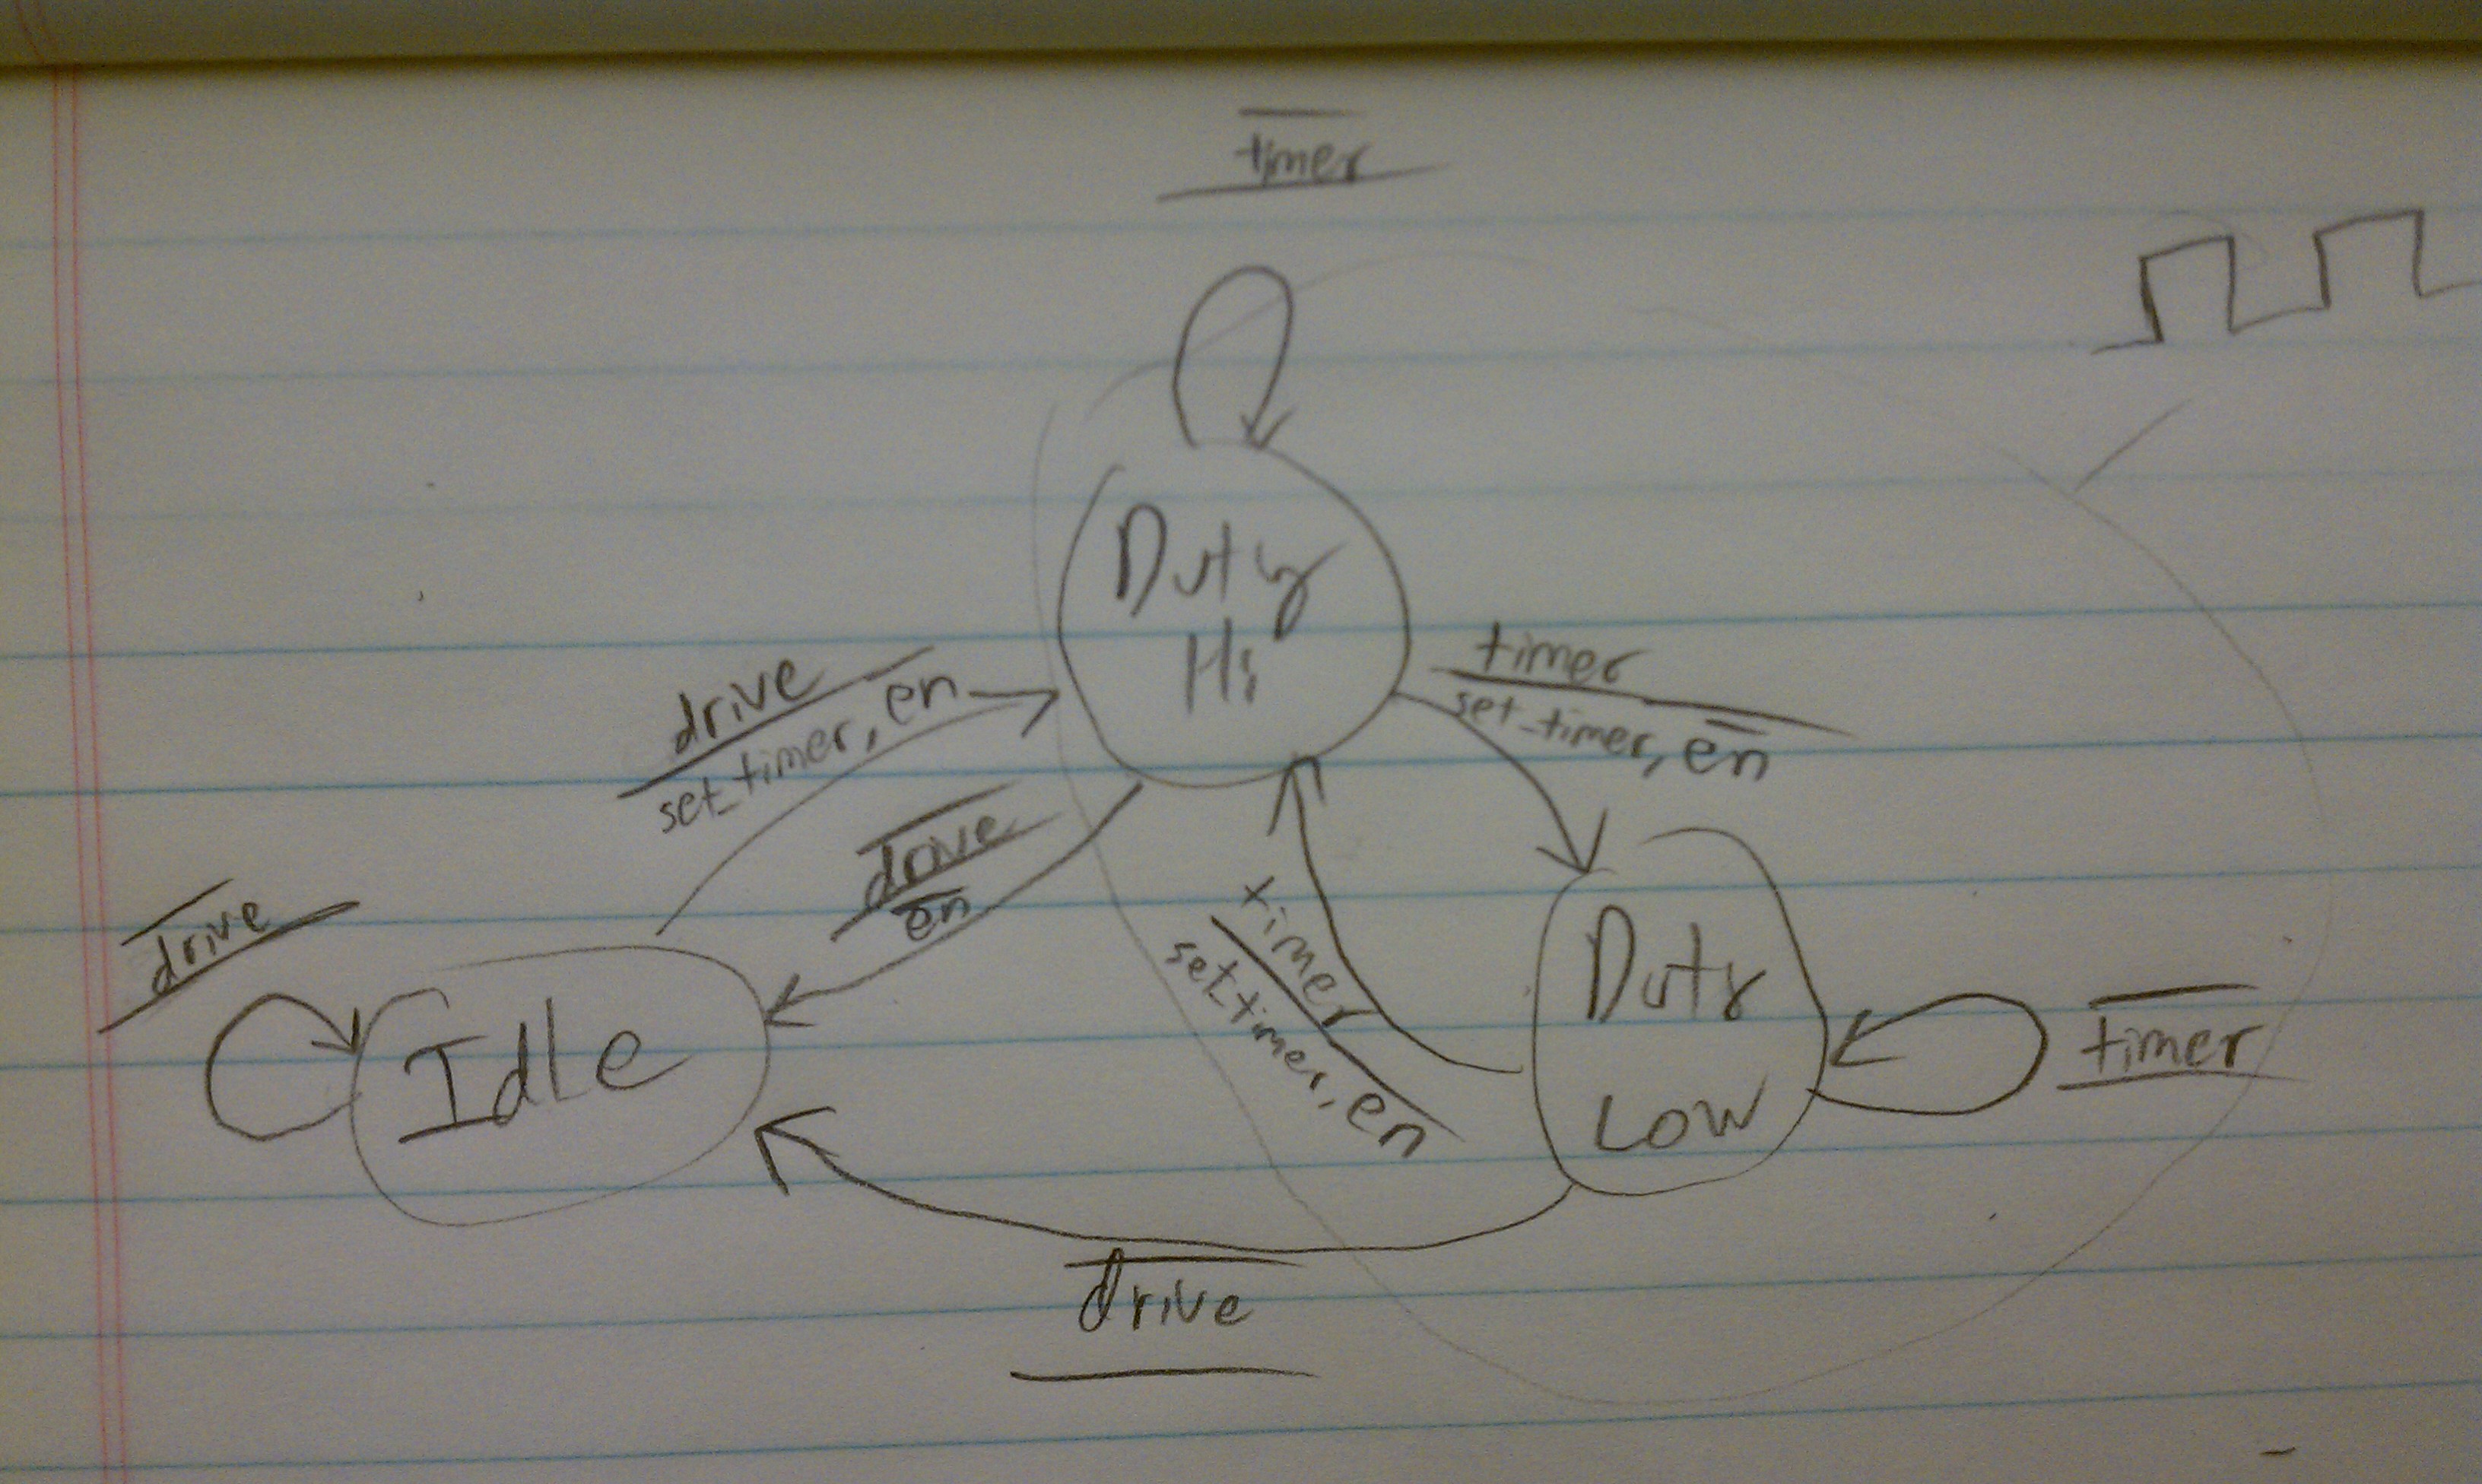 timer
Duty
Hi
drive
set_timer, en
timer
set_timer, en
drive
en
drive
timer
set_timer, en
Duty
Low
timer
Idle
drive